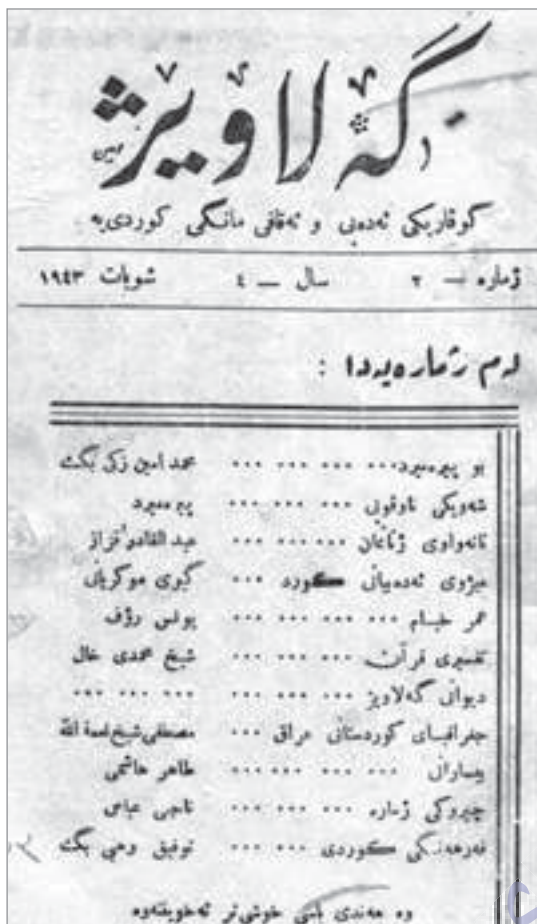 گەلاوێژ
گوفاریکی ئەدەبی و ثەقافی مانگی کوردی یە
ژمارە — ٢ سال — ٤ شوبات ١٩٤٣
لەم ژمارەیەدا :
بو پیرەمیرد ... ... ... ... محمد امین زکی بگ
شەویکی ... ... ... پیرەمیرد
ژنانمان ... ... ... عبد القادر قزاز
میژوی ئەدەبیاتی کورد ... گیوی موکریانی
عمر خیام ... ... ... ... یونس رؤف
تفسیری قرآن ... ... ... شیخ محمدی خال
دیوانی گەلاویز ... ... ... ... ... ...
جغرافیای کوردستانی عراق ... مصطفی شیخ نعمة الله
بیسارانی ... ... ... ... ... طاهر هاشمی
چیروکی ژمارە ... ... ... ناجی عباس
فەرهەنگی کوردی ... ... توفیق وهبی بگ
وە هەندی باسی خوش تر ئەخوینەوە